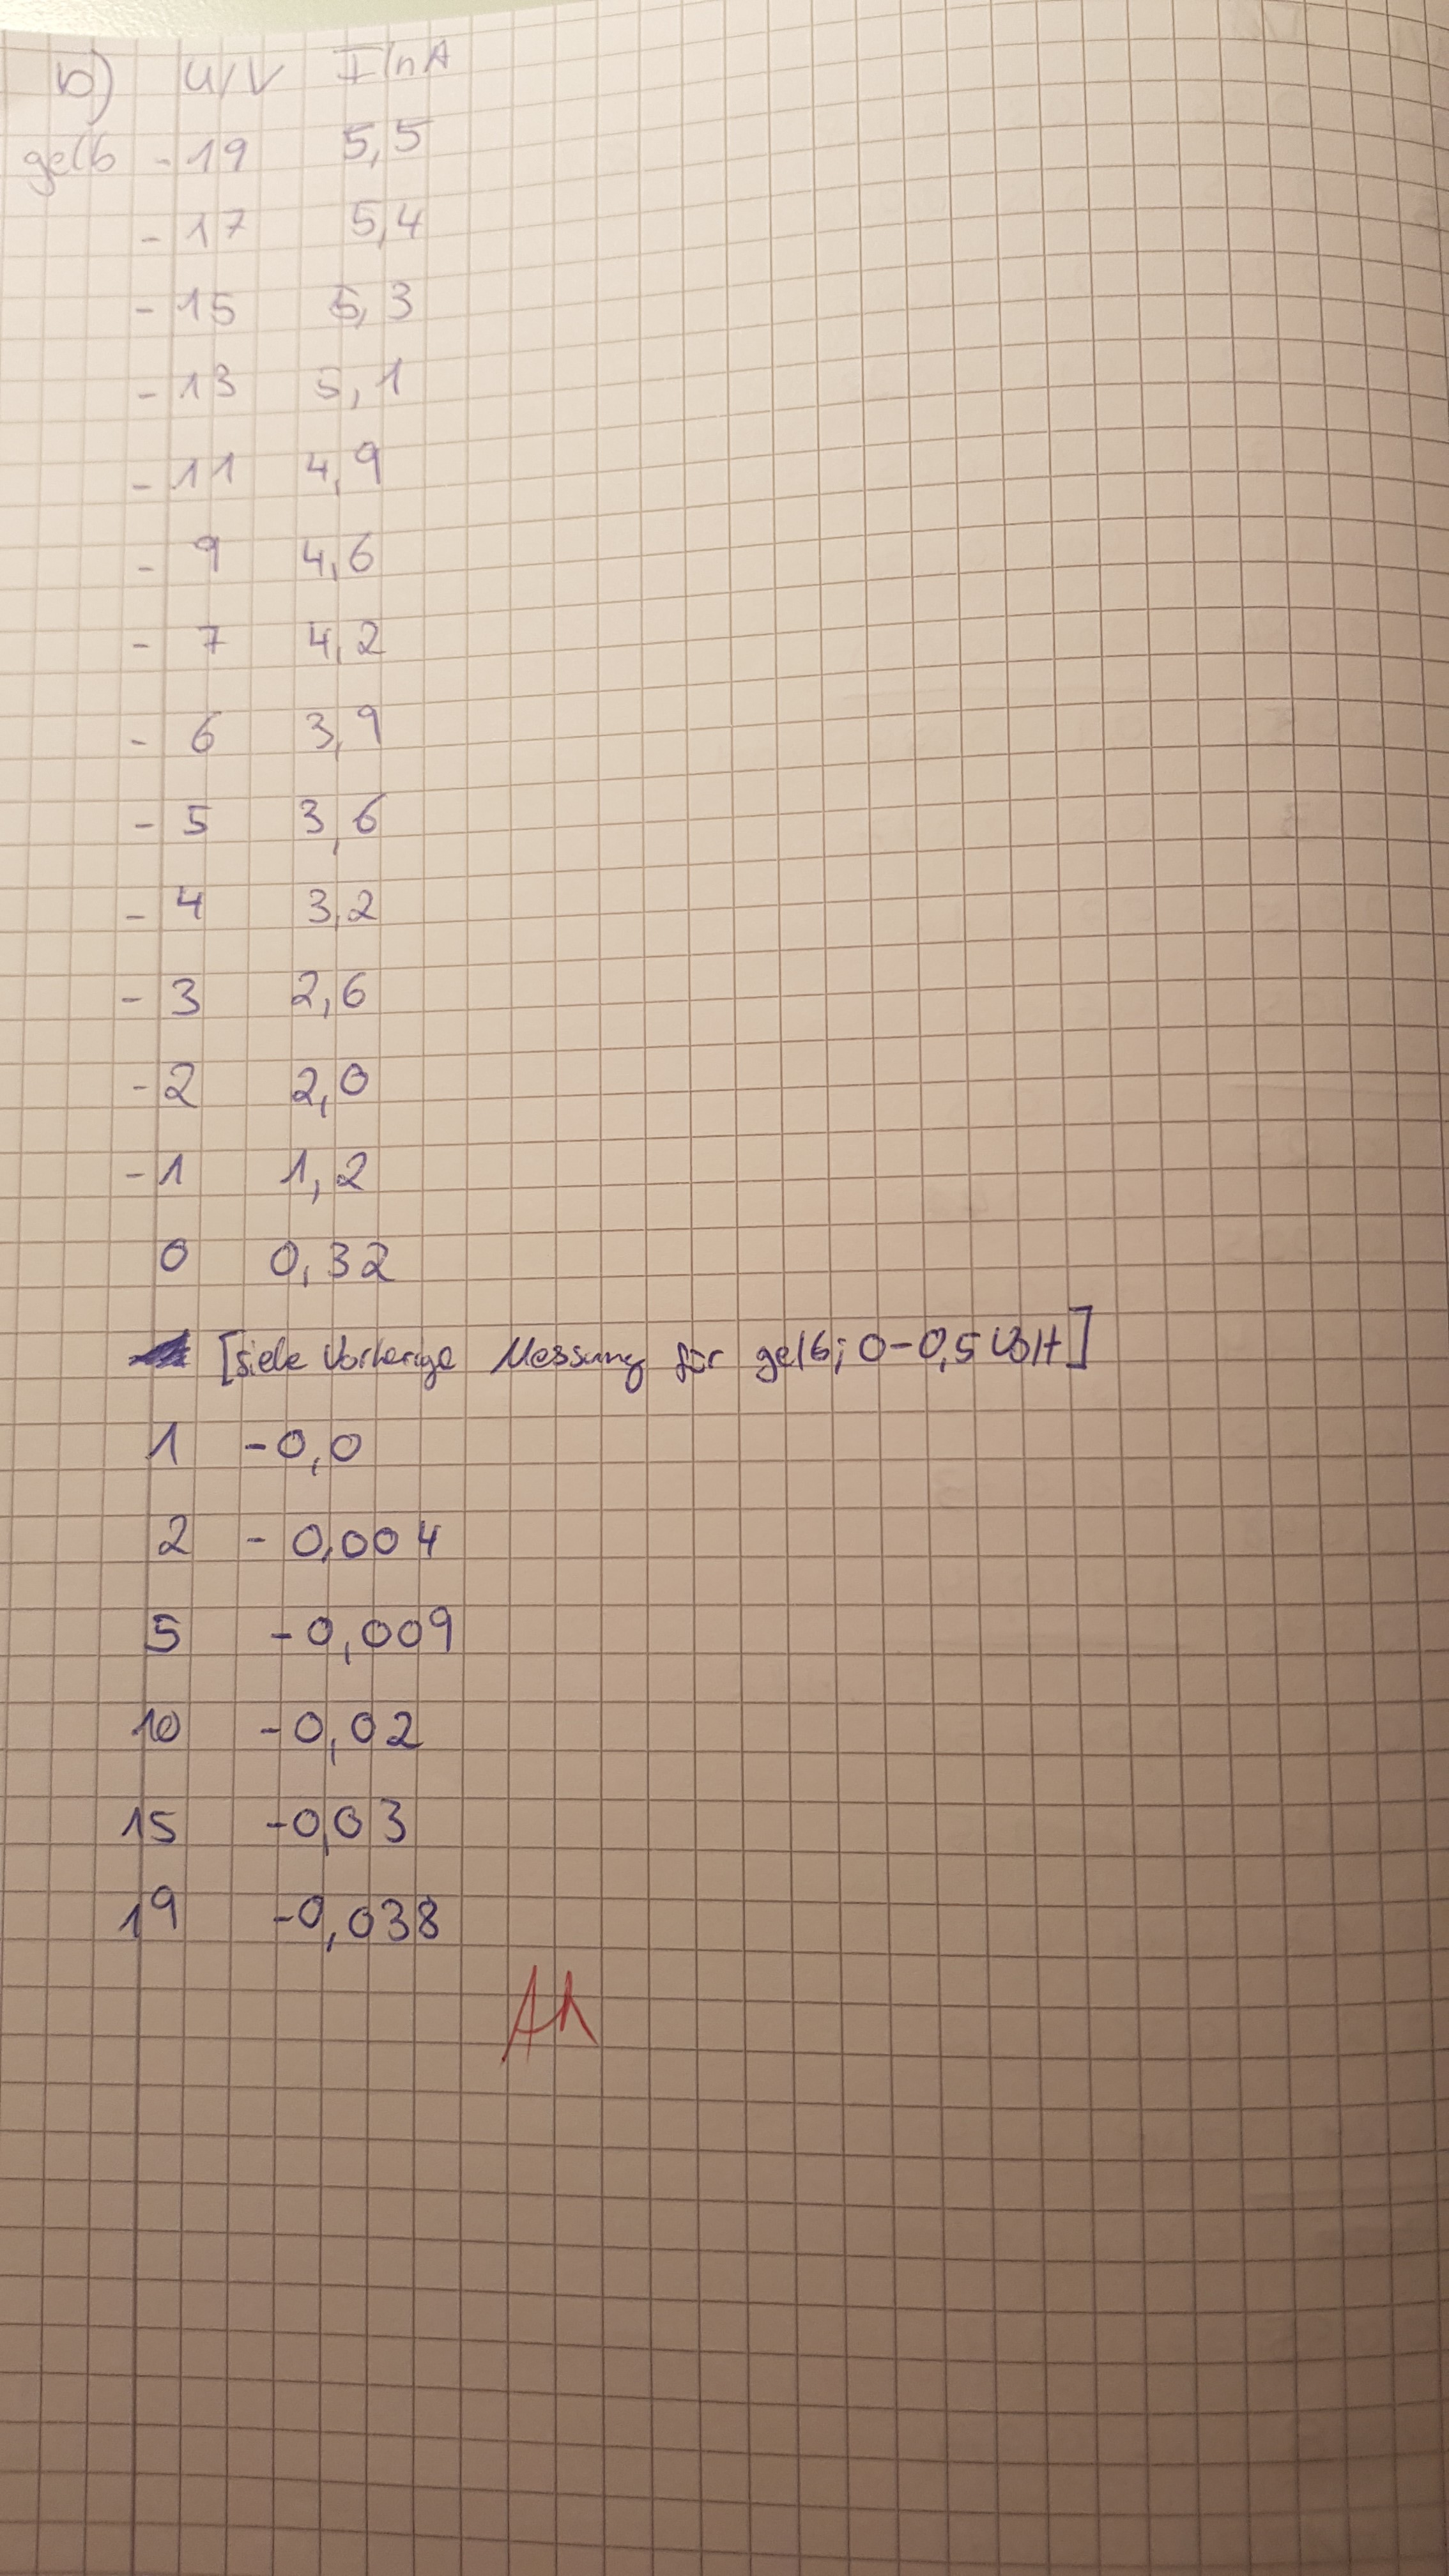 b) U/V I/nA
gelb -19 5,5
-17 5,4
-15 5,3
-13 5,1
-11 4,9
-9 4,6
-7 4,2
-6 3,9
-5 3,6
-4 3,2
-3 2,6
-2 2,0
-1 1,2
0 0,32
[siehe vorherige Messung für gelb; 0-0,5 Volt]
1 -0,0
2 -0,004
5 -0,009
10 -0,02
15 -0,03
19 -0,038